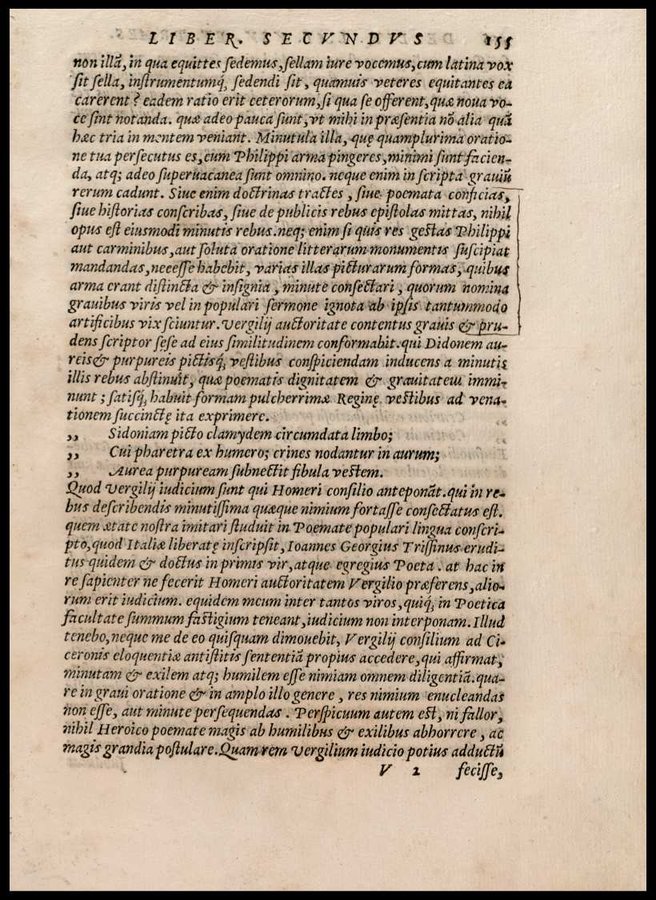 LIBER. SECVNDVS 155
non illã, in qua equittes sedemus, sellam iure vocemus, cum latina vox
sit sella, instrumentumq́, sedendi sit, quamuis veteres equitantes ea
carerent? eadem ratio erit ceterorum, si qua se offerent, quæ noua vo-
ce sint notanda. quæ adeo pauca sunt, vt mihi in præsentia nõ alia quã
hæc tria in mentem veniant. Minutula illa, quę quamplurima oratio-
ne tua persecutus es, cum Philippi arma pingeres, minimi sunt facien-
da, atq; adeo superuacanea sunt omnino. neque enim in scripta grauiũ
rerum cadunt. Siue enim doctrinas tractes, siue poemata conficias,
siue historias conscribas, siue de publicis rebus epistolas mittas, nihil
opus est eiusmodi minutis rebus. neq; enim si quis res gestas Philippi
aut carminibus, aut soluta oratione litterarum monumentis suscipiat
mandandas, necesse habebit, varias illas picturarum formas, quibus
arma erant distincta & insignia, minute consectari, quorum nomina
grauibus viris vel in populari sermone ignota ab ipsis tantummodo
artificibus vix sciuntur. Vergilij auctoritate contentus grauis & pru-
dens scriptor sese ad eius similitudinem conformabit. qui Didonem au-
reis & purpureis pictisq́, vestibus conspiciendam inducens a minutis
illis rebus abstinuit, quæ poematis dignitatem & grauitatem immi-
nunt; satisq́, habuit formam pulcherrimæ Reginę vestibus ad vena-
tionem succinctę ita exprimere.
,, Sidoniam picto clamydem circumdata limbo;
,, Cui pharetra ex humero; crines nodantur in aurum;
,, Aurea purpuream subnectit fibula vestem.
Quod Vergilij iudicium sunt qui Homeri consilio anteponãt. qui in re-
bus describendis minutissima quæque nimium fortasse consectatus est.
quem ætate nostra imitari studuit in Poemate populari lingua conscri-
pto, quod Italiæ liberatę inscripsit, Ioannes Georgius Trissinus erudi-
tus quidem & doctus in primis vir, atque egregius Poeta. at hac in
re sapienter ne fecerit Homeri auctoritatem Vergilio præferens, alio-
rum erit iudicium. equidem meum inter tantos viros, quiq́, in Poetica
facultate summum fastigium teneant, iudicium non interponam. Illud
tenebo, neque me de eo quisquam dimouebit, Vergilij consilium ad Ci-
ceronis eloquentiæ antistitis sententiã propius accedere, qui affirmat,
minutam & exilem atq; humilem esse nimiam omnem diligentiã. qua-
re in graui oratione & in amplo illo genere, res nimium enucleandas
non esse, aut minute persequendas. Perspicuum autem est, ni fallor,
nihil Heroico poemate magis ab humilibus & exilibus abhorrere, ac
magis grandia postulare. Quam rem Vergilium iudicio potius adductũ
V 2 fecisse,